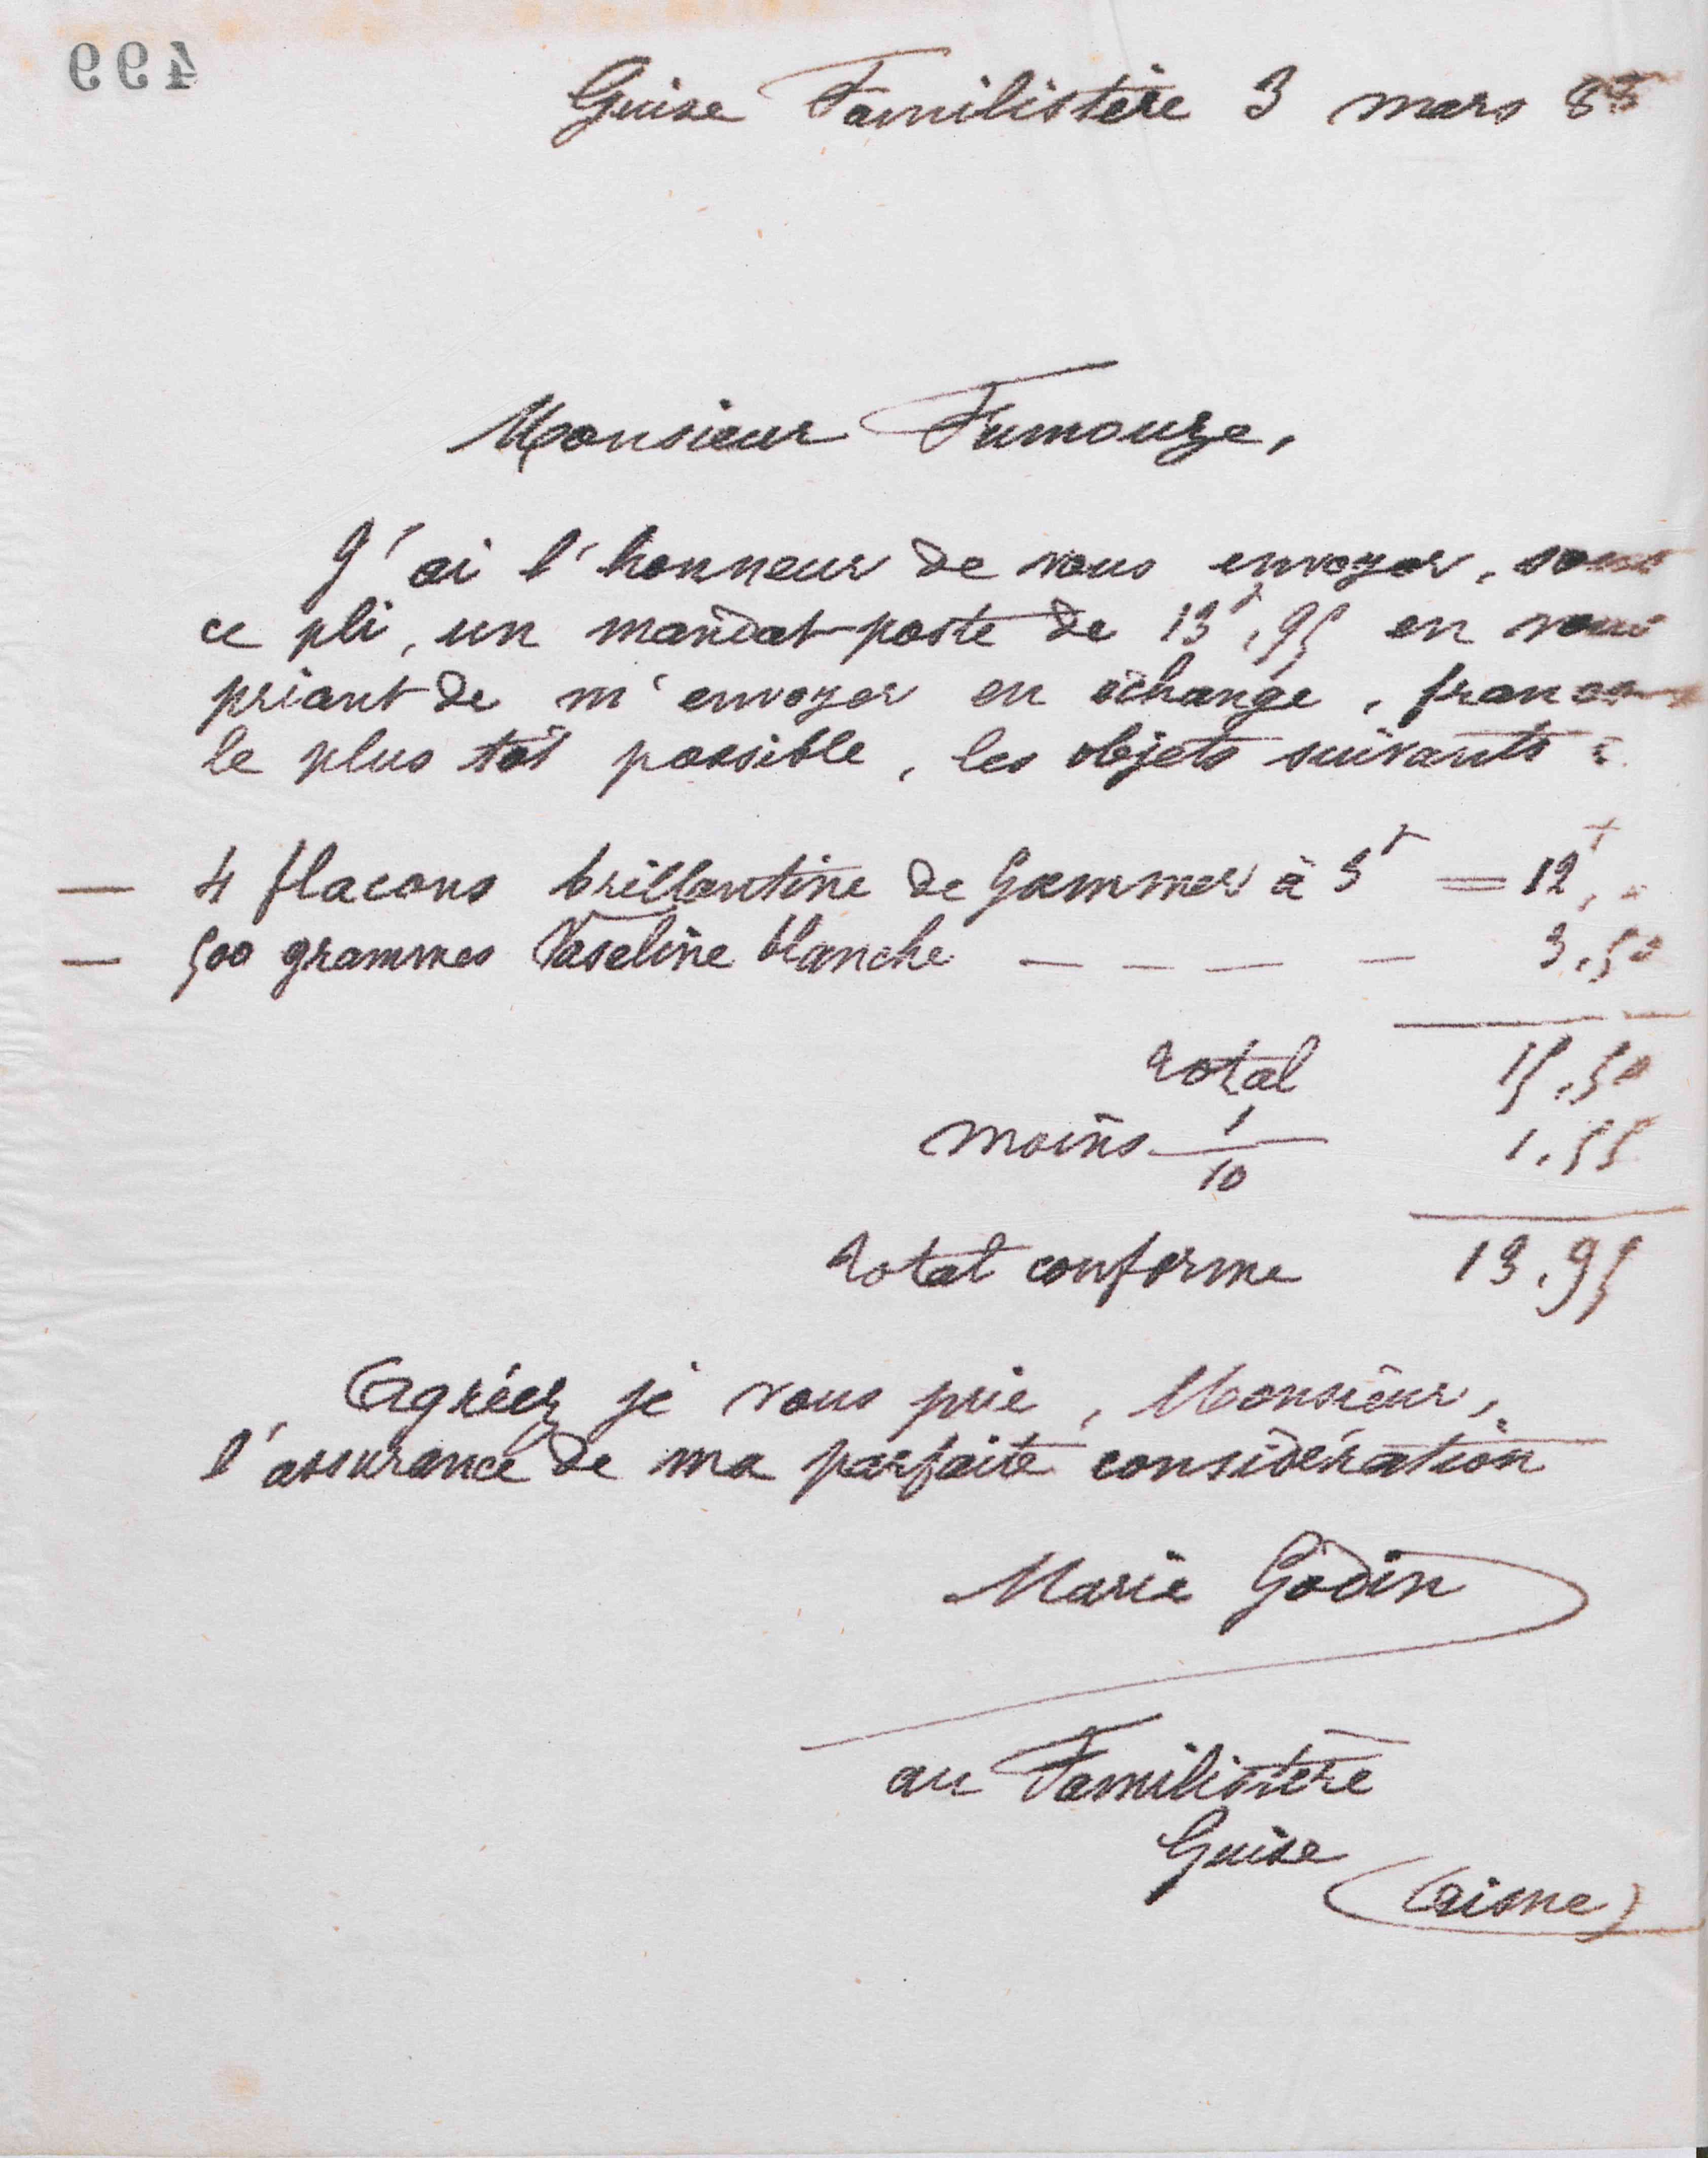 499
Guise Familistère 3 mars
Monsieur Fumouze,
J'ai l'honneur de vous envoyer, sous
ce pli, un mandat-poste de 13f,95 en vous
priant de m'envoyer en échange, franco
le plus tôt possible, les objets suivants :
— 4 flacons brillantine de Gammer à 3f = 12f,"
— 500 grammes Vaseline blanche — — — — 3,50
total 15,50
moins 1/10 1,55
total conforme 13,95
Agréez je vous prie, Monsieur,
l'assurance de ma parfaite considération
Marie Godin
au Familistère
Guise
(Aisne)